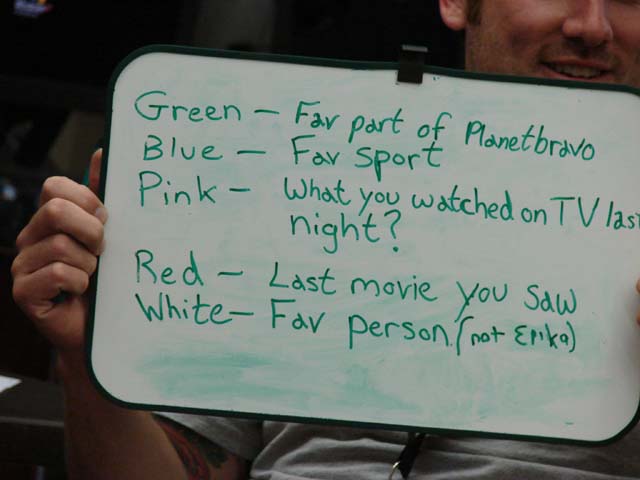 Green - Fav part of Planetbravo
Blue - Fav sport
Pink - What you watched on TV las
night?
Red - Last movie you saw
White - Fav person (not Erika)